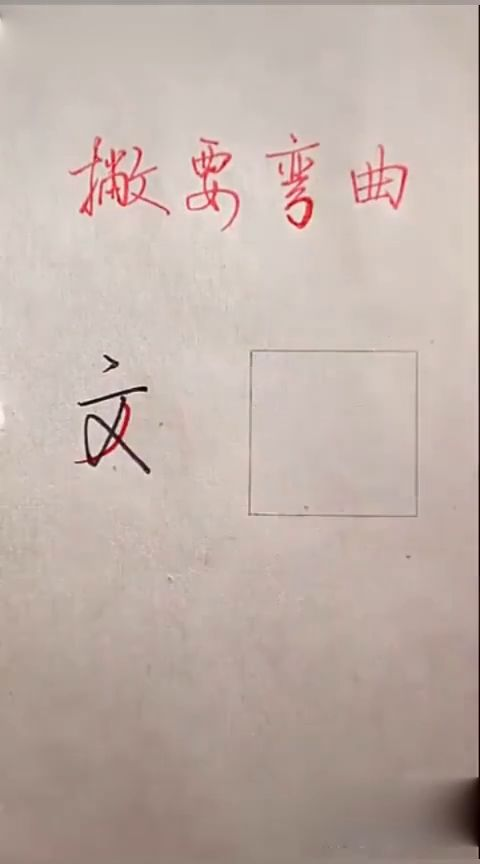 撇要弯曲
文